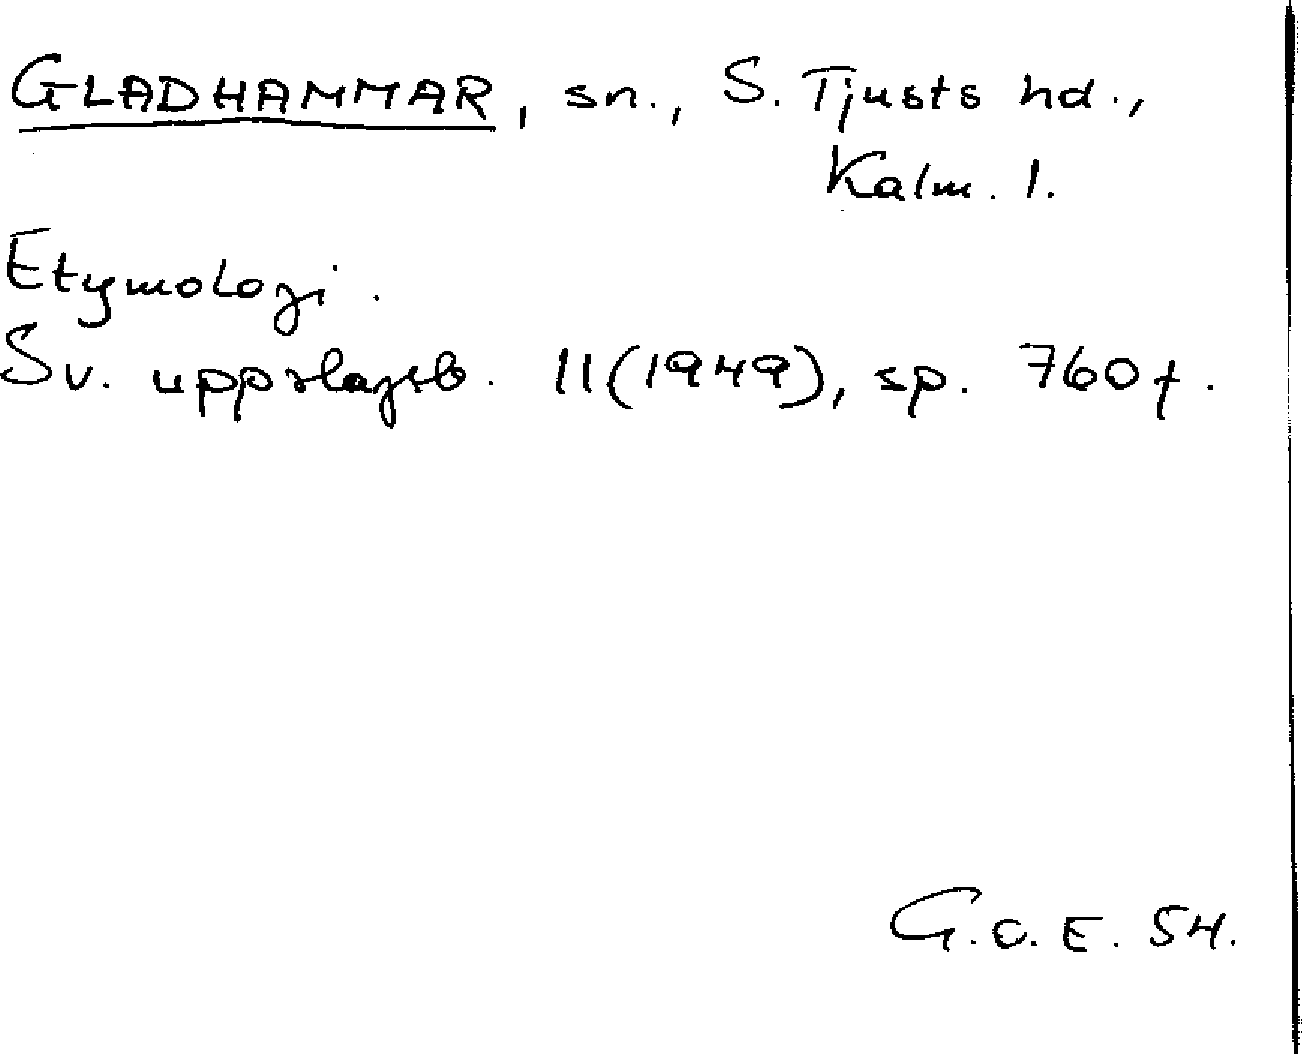 GLADHAMMAR, sn., S. Tjusts hd.,
Kalm. l.
Etymologi.
Sv. uppslagsb. 11(1949), sp. 760 f.
G.O.E. 54.